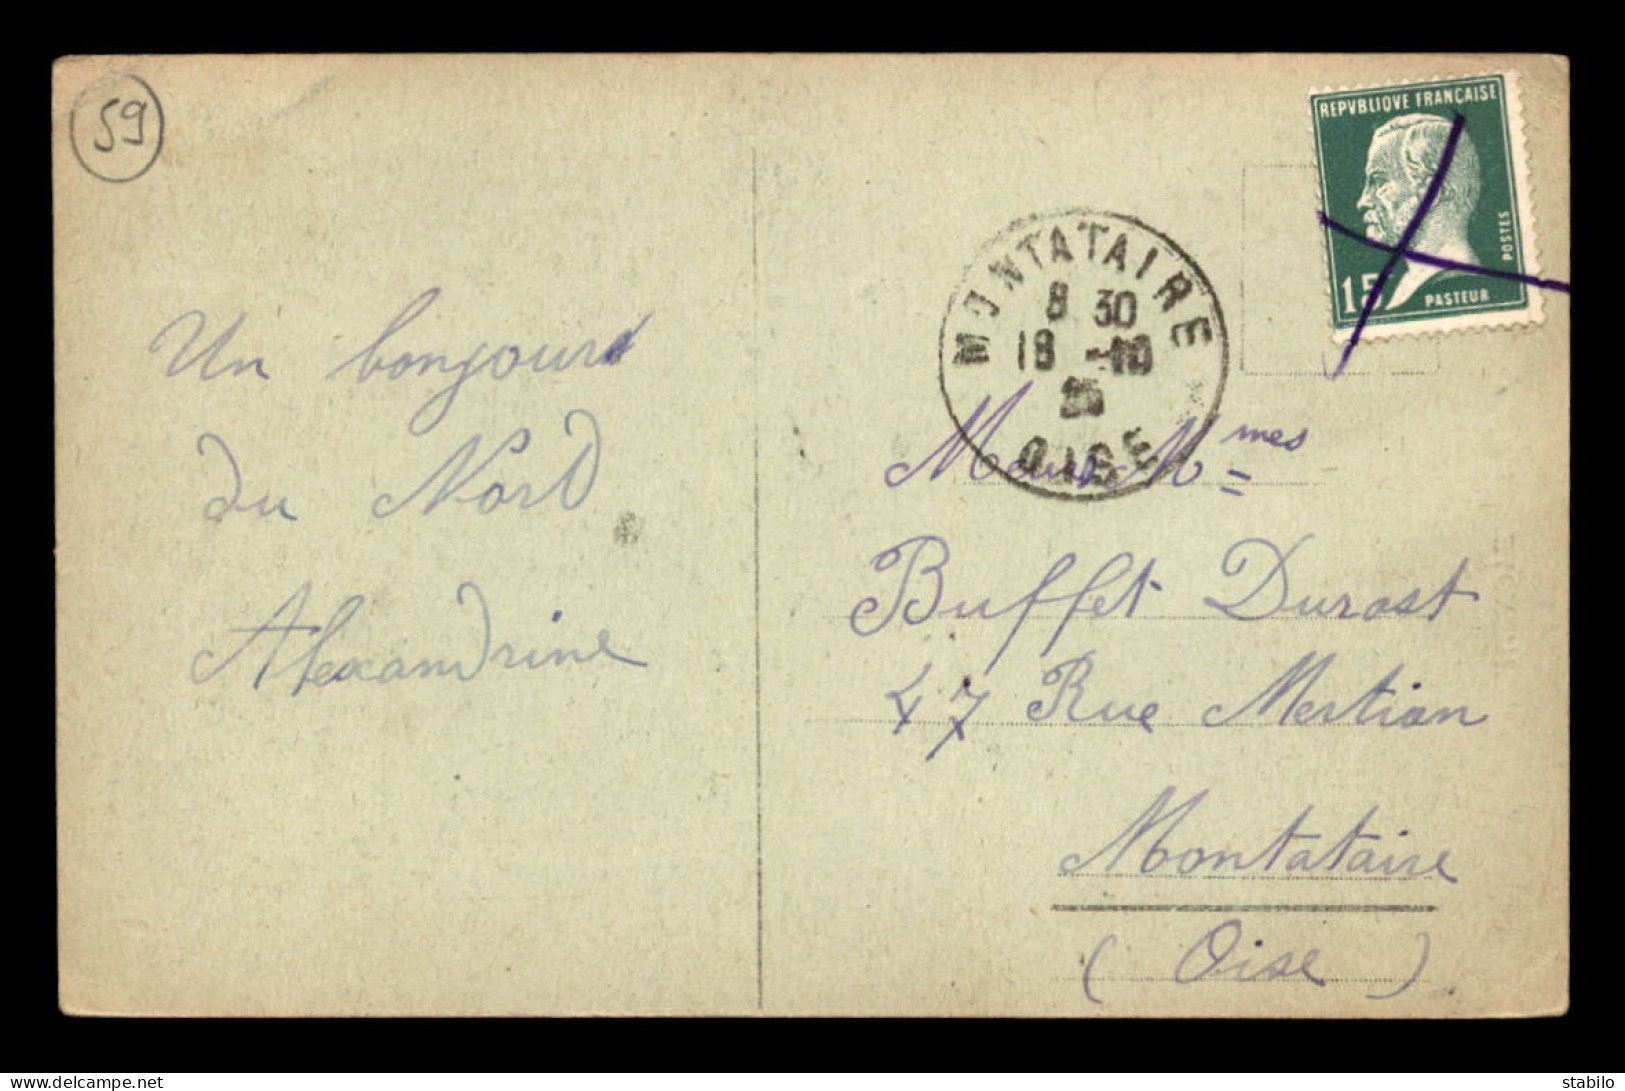 59
REPVBLIQVE FRANÇAISE
POSTES
15
PASTEUR
MONTATAIRE
8 30
18 -10
25
OISE
Un bonjour
du Nord
Alexandrine
M et Mmes
Buffet Durost
47 Rue Mertian
Montataire
(Oise)
delcampe.net
stabilo